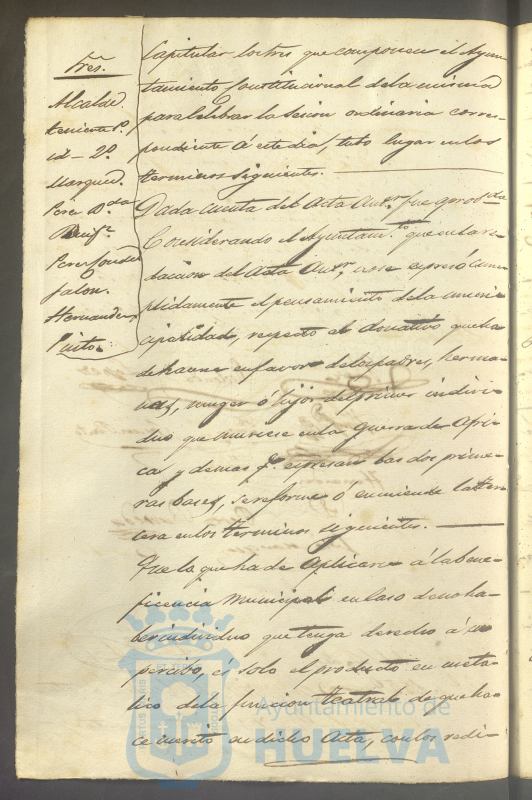 Sres.
Alcalde.
teniente 1º
id - 2º
Marquez.
Perez
Perez
Jalon.
Hernandez
Pinto
Capitular los tres que componen el Ayun-
tamiento Constitucional de la misma
para celebrar la Sesion ordinaria corres-
pondiente á este dia, tubo lugar en los
terminos siguientes.
Dada cuenta del Acta Antr. fue aprobda
Considerando el Ayuntamto. que en la re-
dacion del Acta Antr. no se espresó cum-
plidamente el pensamiento de la muni-
cipalidad, respecto el donativo que ha
de hacerse en favor de los padres, herma-
nos, muger ó hijos del primer indivi-
duo que muriese en la Guerra de Afri-
ca y demas qe. espresan las dos prime-
ras bases, se reforme ó enmiende la ter-
cera en los terminos siguientes.
Que lo que ha de Aplicarse á la bene-
ficencia Municipal en caso de no ha-
ber individuo que tenga derecho á su
percibo, es solo el producto en metá-
lico de la funcion teatral de que ha-
ce merito en dicho Acta, con los redi-
Ayuntamiento de
HUELVA